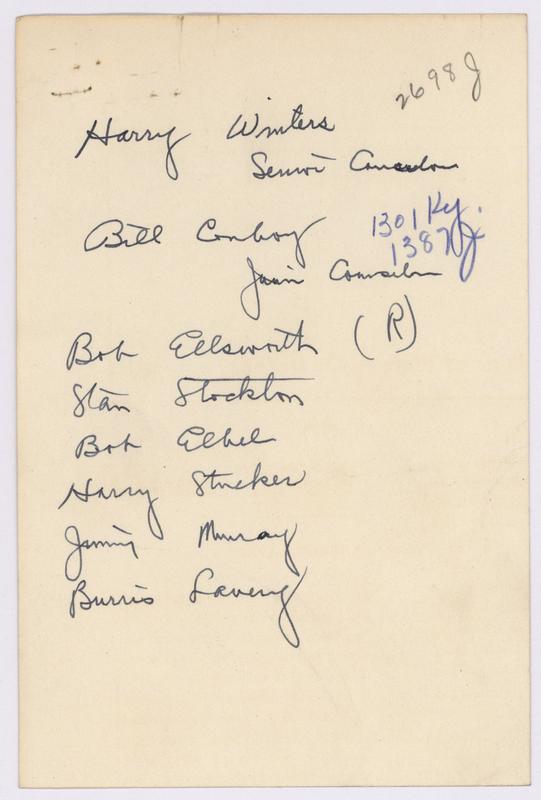 2698 J
Harry Winters
Senior Counselor
Bill Conboy
1301 Ky.
1387 J.
Junior Counselor
Bob Ellsworth (R)
Stan Stockton
Bob Elbel
Harry Stucker
Jimmy Murray
Burris Lavery